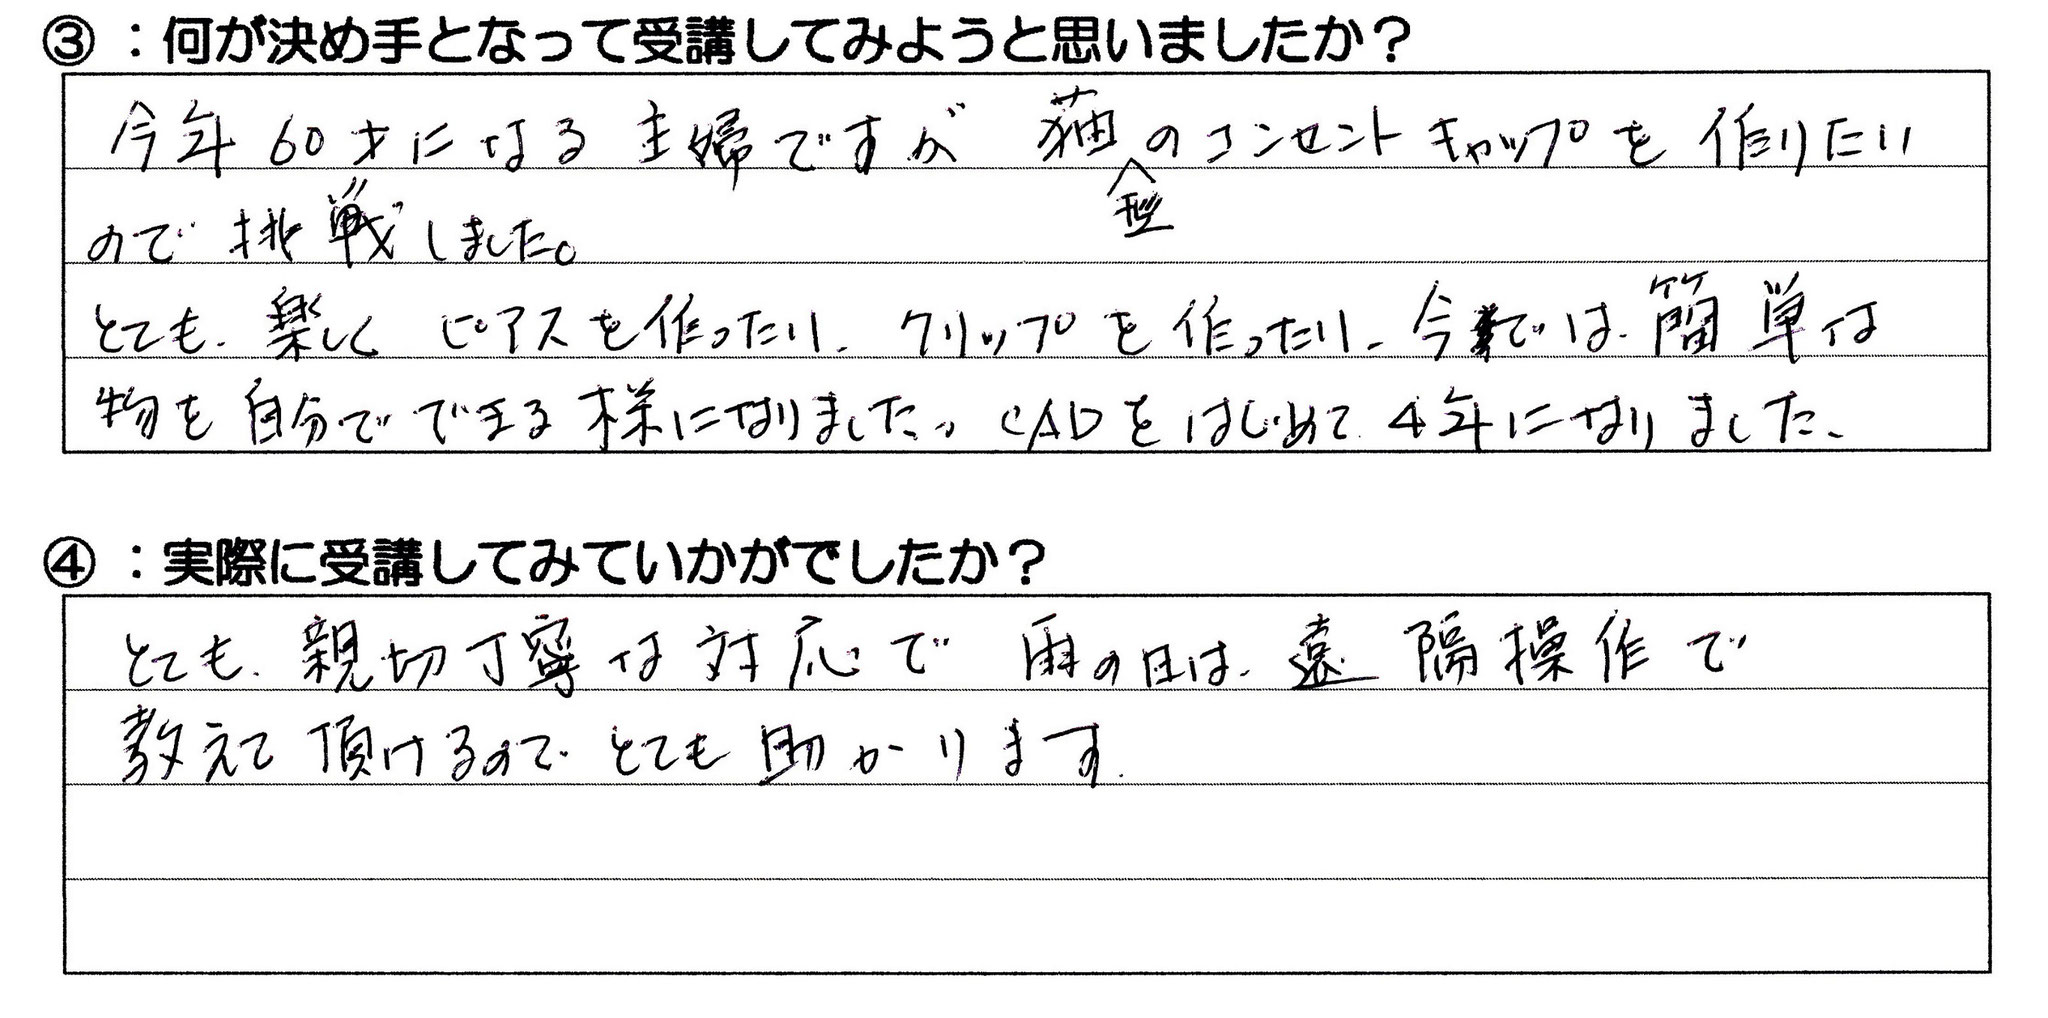 ③：何が決め手となって受講してみようと思いましたか？
今年60才になる主婦ですが 猫型のコンセントキャップを作りたい
ので挑戦しました。
とても、楽しくピアスを作ったり、クリップを作ったり、今では、簡単な
物を自分でできる様になりました。CADをはじめて4年になりました、
④：実際に受講してみていかがでしたか？
とても、親切丁寧な対応で 雨の日は、遠隔操作で
教えて頂けるので とても助かります.